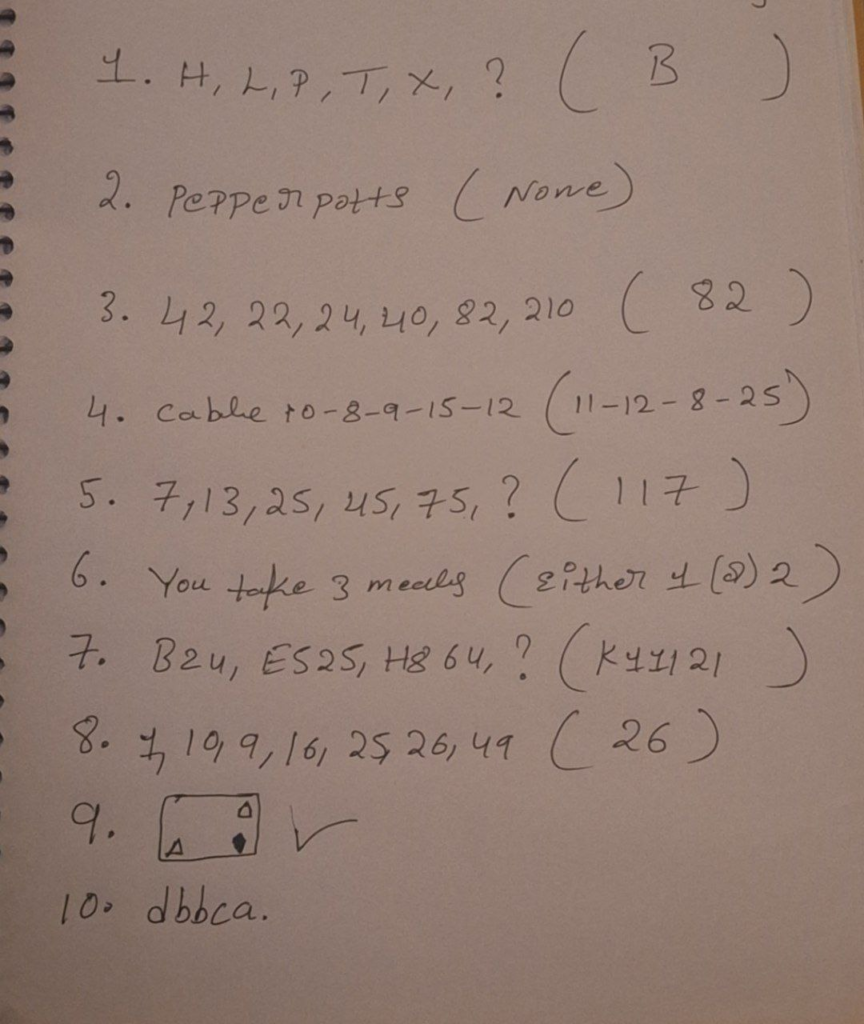 1. H, L, P, T, X, ? ( B )
2. Pepper potts ( None )
3. 42, 22, 24, 40, 82, 210 ( 82 )
4. cable 10-8-9-15-12 (11-12-8-25)
5. 7, 13, 25, 45, 75, ? ( 117 )
6. You take 3 meals ( Either 1 (or) 2 )
7. B24, E525, H864, ? ( K11121 )
8. 1, 10, 9, 16, 25, 26, 49 ( 26 )
9.
10. dbbca.